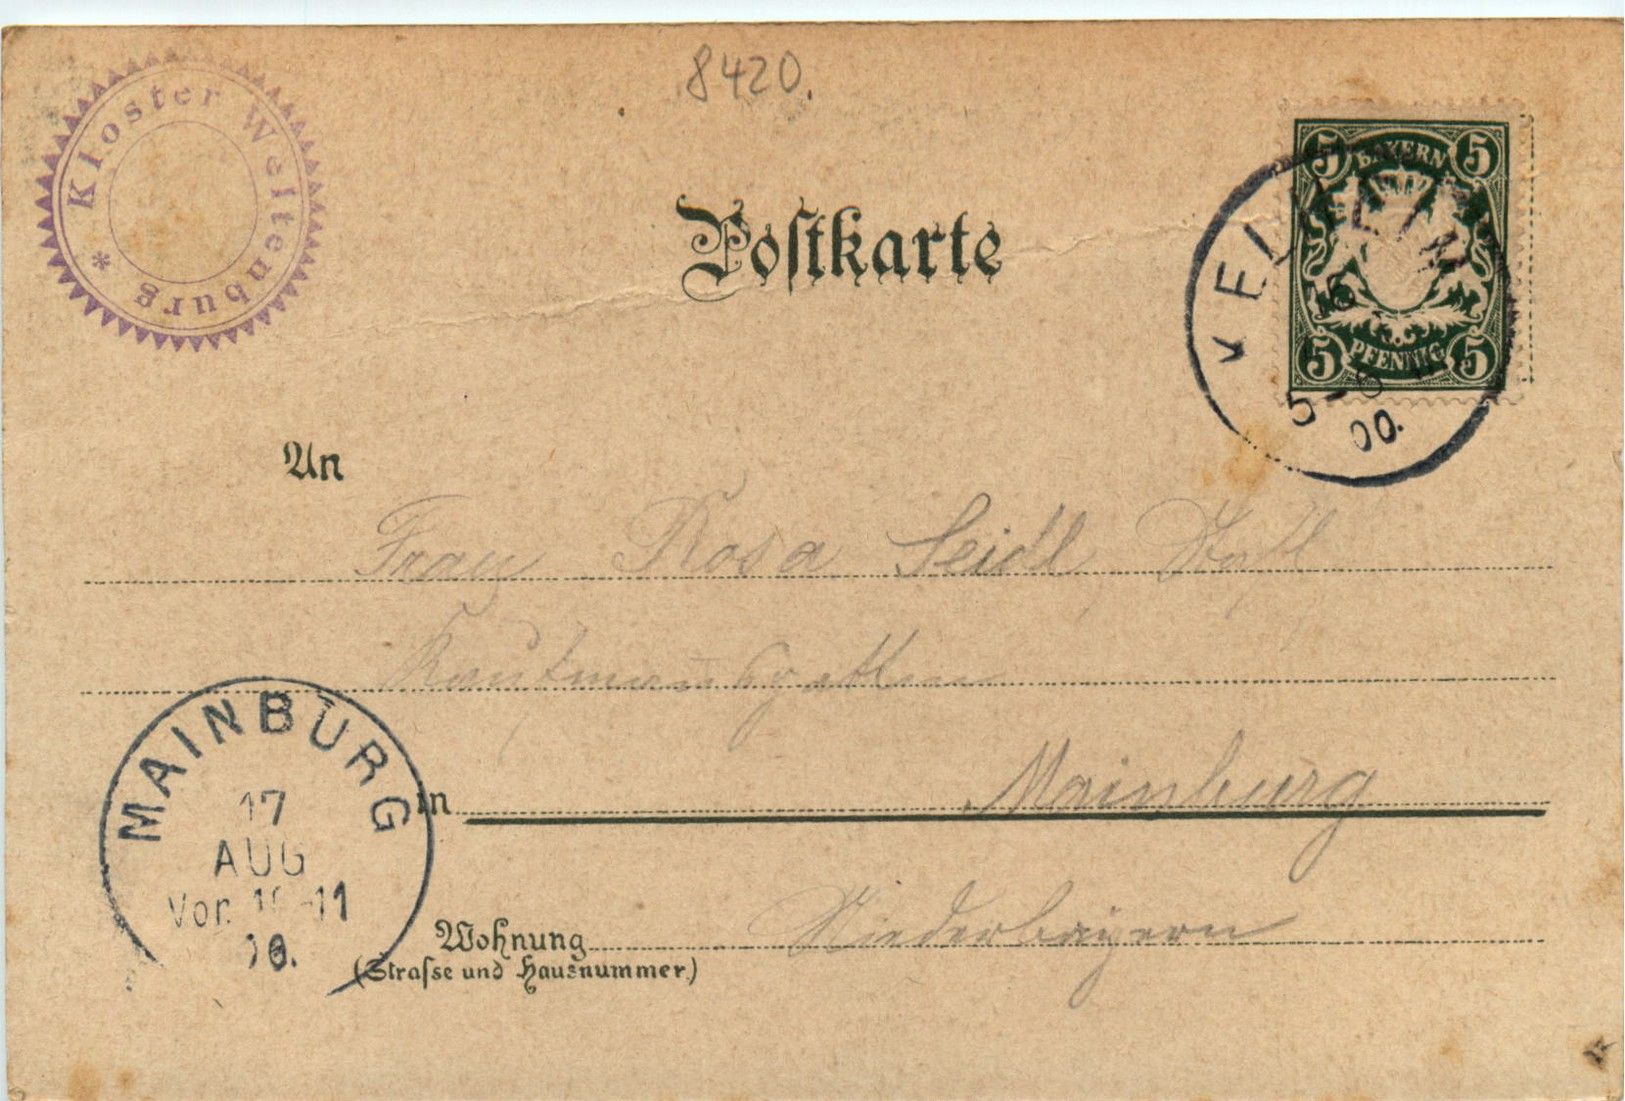 8420.
Kloster Weltenburg *
Postkarte
5 BAYERN 5
5 PFENNIG 5
00.
An
Frau Rosa Seidl,
Kaufmannsgattin
in Mainburg
MAINBURG
17
AUG
Vor. 10-11
00.
Wohnung Niederbayern
(Strasse und Hausnummer.)